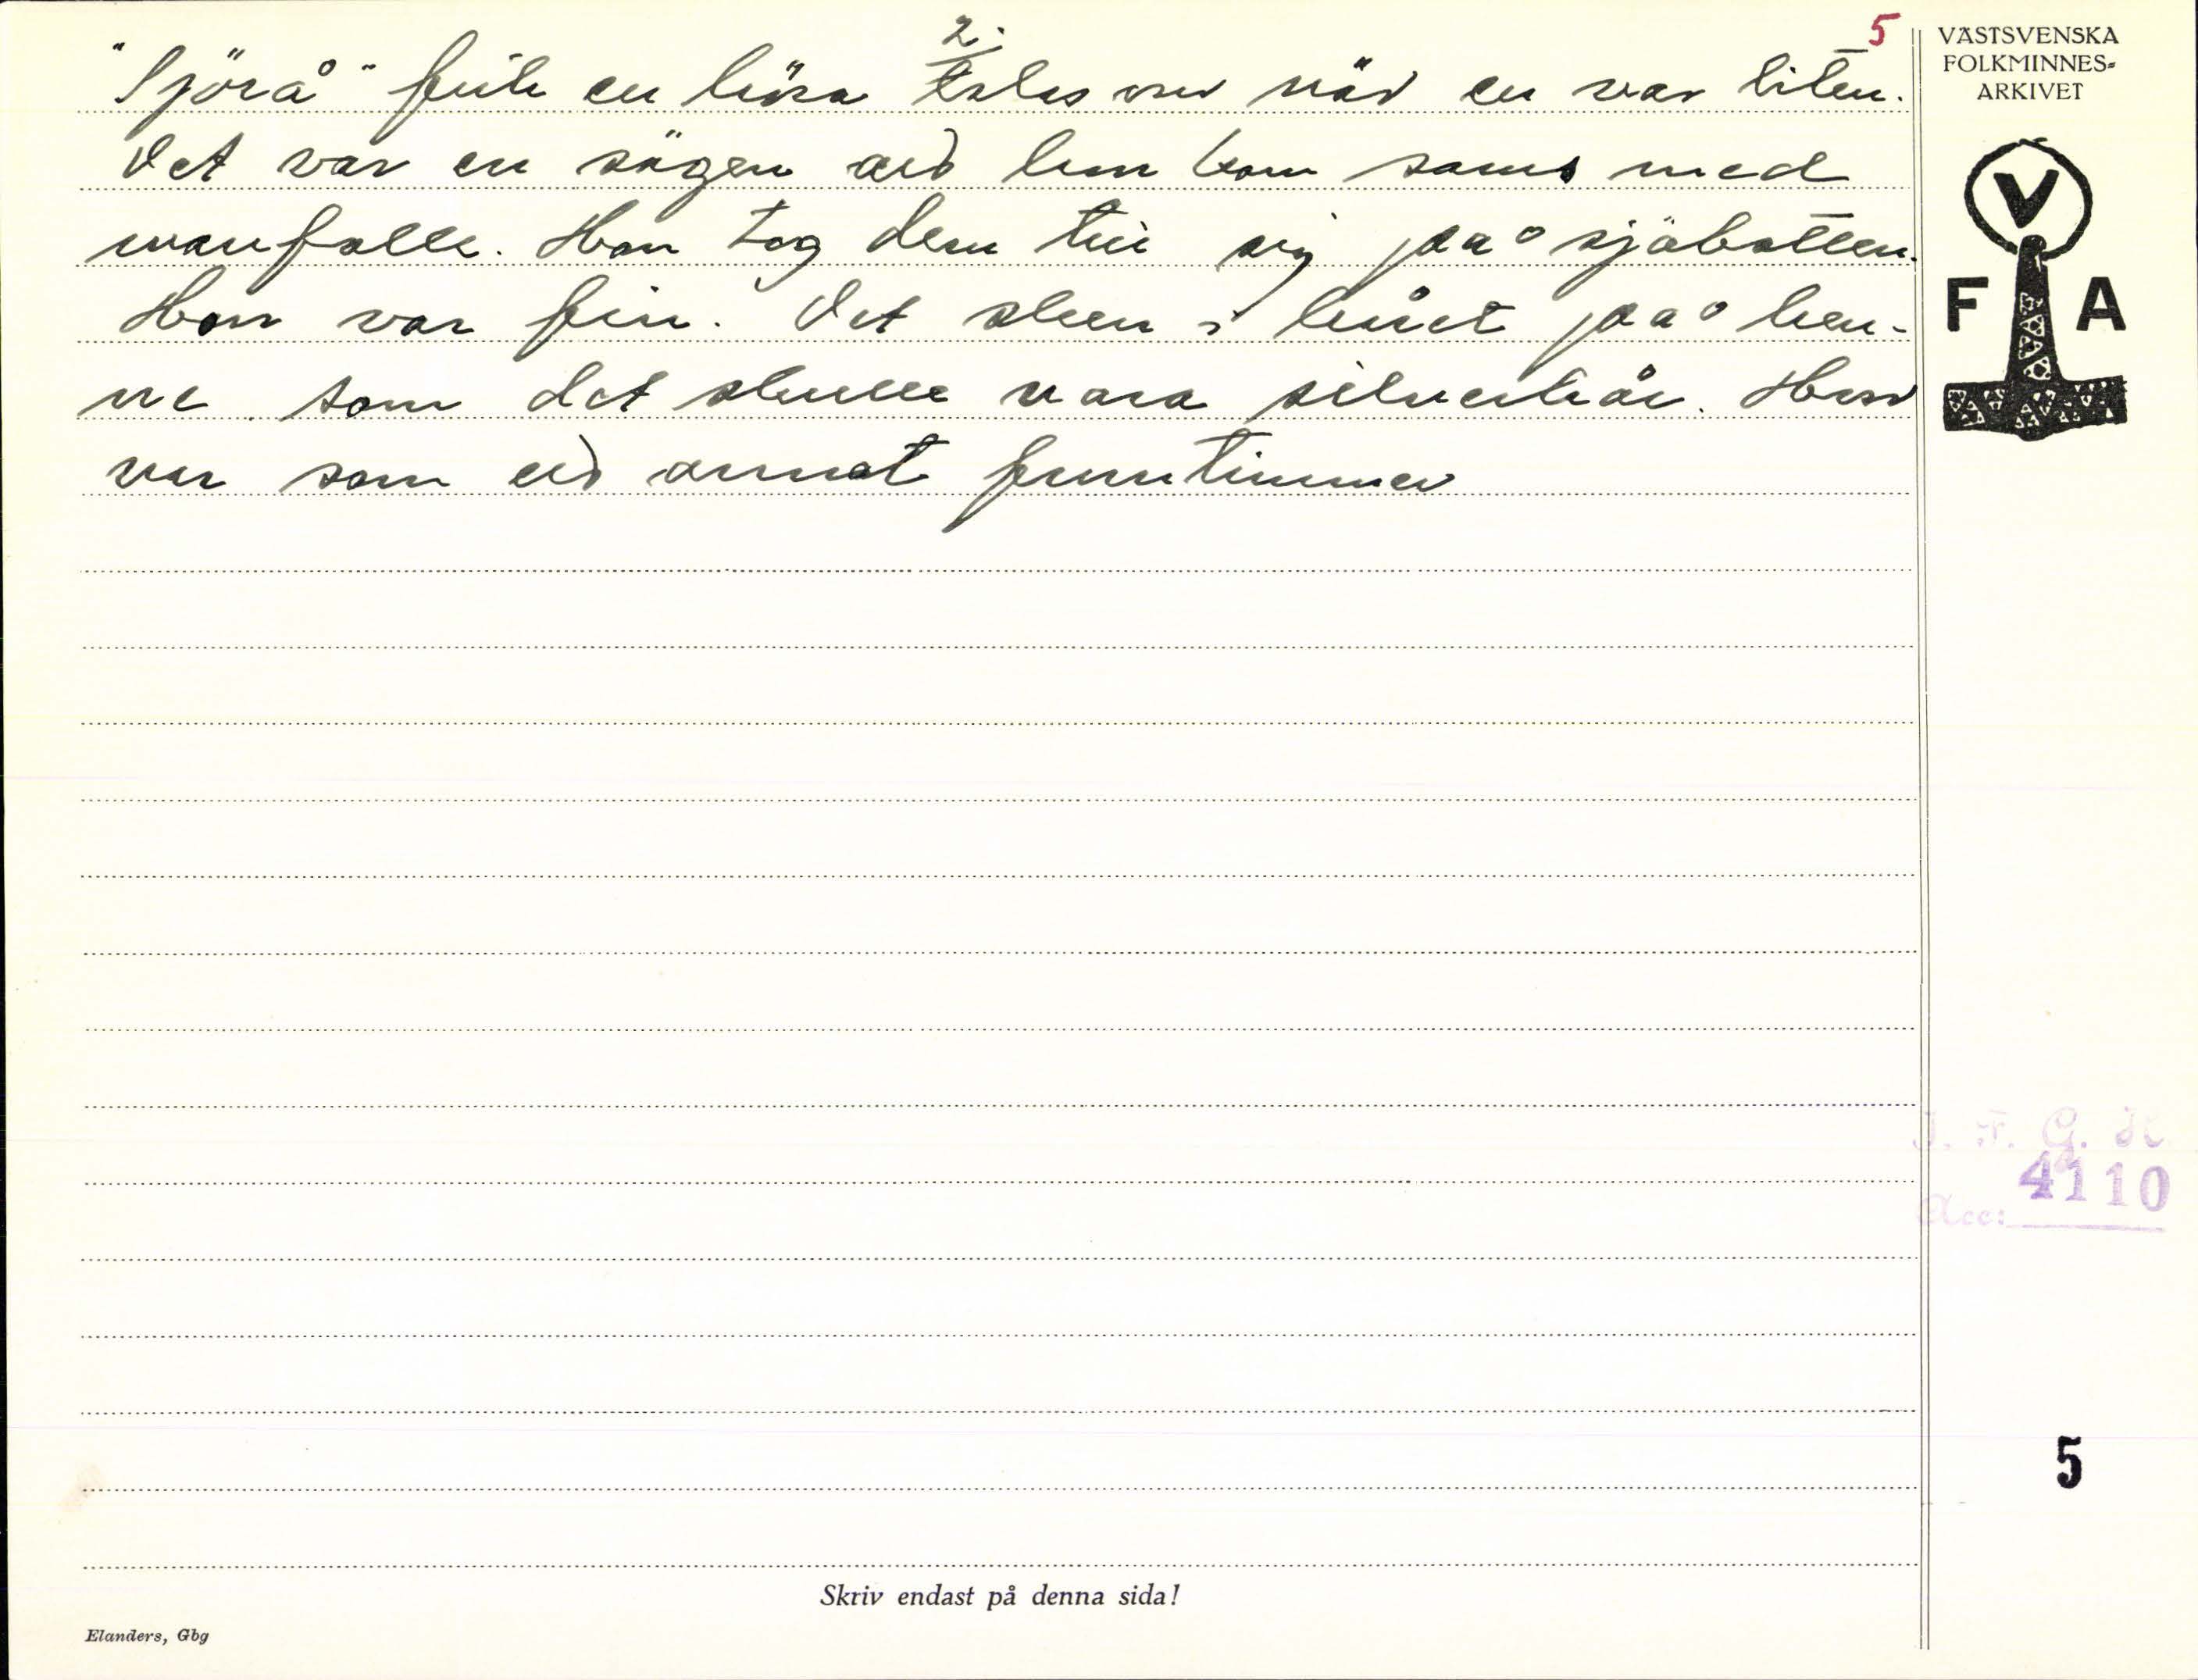 2.
5
"Sjörå" fick en höra talas om när en var liten.
Det var en sägen att hon kom sams med
manfolk. Hon tog dem till sig på sjöbotten.
Hon var fin. Det sken i håret på hen-
ne som det skulle vara silverhår. Hon
var som ett annat fruntimmer
VÄSTSVENSKA
FOLKMINNES-
ARKIVET
V
F A
4110
Acc:
5
Skriv endast på denna sida!
Elanders, Gbg